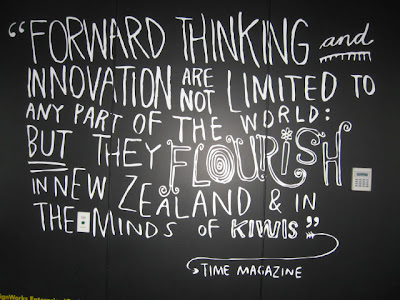 “FORWARD THINKING and
INNOVATION ARE NOT LIMITED TO
ANY PART OF THE WORLD:
BUT THEY FLOURISH
IN NEW ZEALAND & IN
THE MINDS OF KIWIS”
TIME MAGAZINE